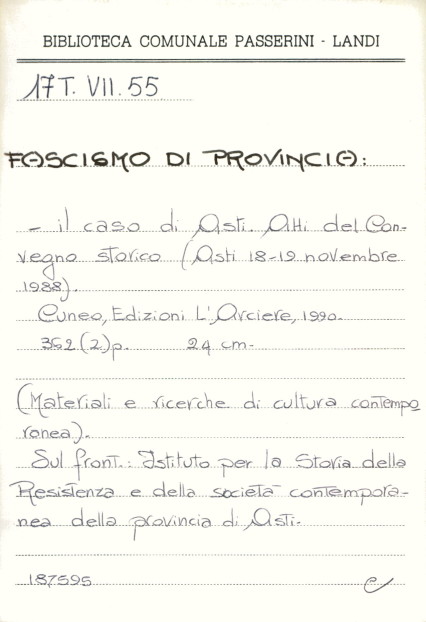 BIBLIOTECA COMUNALE PASSERINI - LANDI
17 T. VII. 55
FASCISMO DI PROVINCIA:
- il caso di Asti. Atti del Con-
vegno storico (Asti 18-19 novembre
1988).
Cuneo, Edizioni L'Arciere, 1990.
352 (2) p. 24 cm.
(Materiali e ricerche di cultura contempo
ronea).
Sul front.: Istituto per la Storia della
Resistenza e della società contempora-
nea della provincia di Asti.
187595